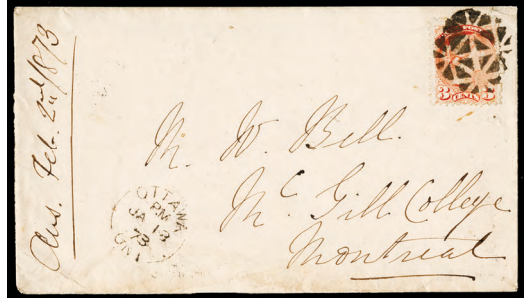 Ans. Feb. 2nd/1873
3 CENTS
M. W. Bell.
McGill College
Montreal
OTTAWA
PM
JA 13
73
ONT